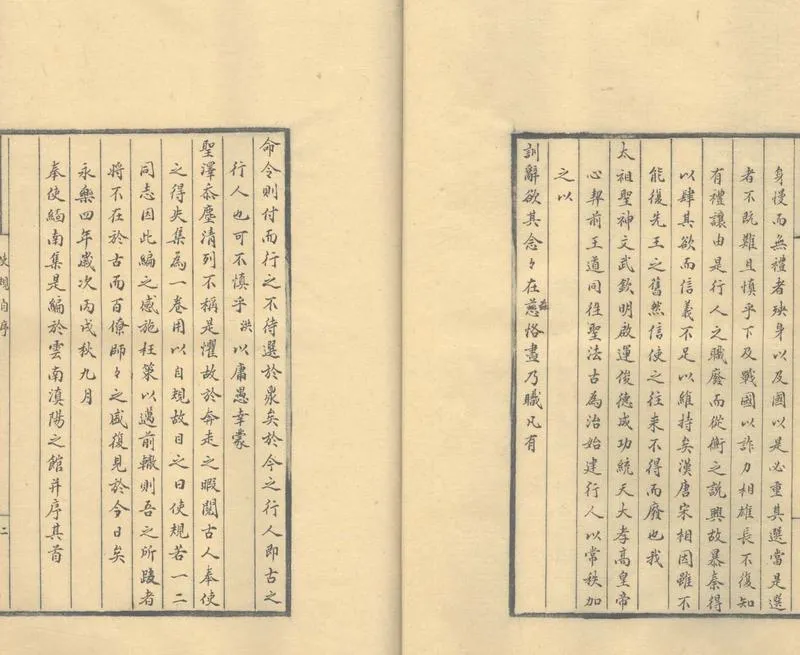 身慢而無禮者殃身以及國以是必重其選當是選
者不既難且慎乎下及戰國以詐力相雄長不復知
有禮讓由是行人之職廢而從衡之說興故暴秦得
以肆其欲而信義不足以維持矣漢唐宋相因雖不
能復先王之舊然信使之往来不得而廢也我
太祖聖神文武欽明啟運俊德成功統天大孝高皇帝
心契前王道同往聖法古為治始建行人以常秩加
之以
訓辭欲其念々在慈恪盡乃職凡有
茲
命令則付而行之不待選於衆矣於今之行人即古之
行人也可不慎乎洪以庸愚幸蒙
聖澤忝塵清列不稱是懼故於奔走之暇閱古人奉使
之得失集為一卷用以自規故目之曰使規若一二
同志因此編之感施枉策以邁前轍則吾之所陵者
將不在於古而百僚師々之盛復見於今日矣
永樂四年歲次丙戌秋九月
奉使緬南集是編於雲南滇陽之館并序其首
使規自序
二